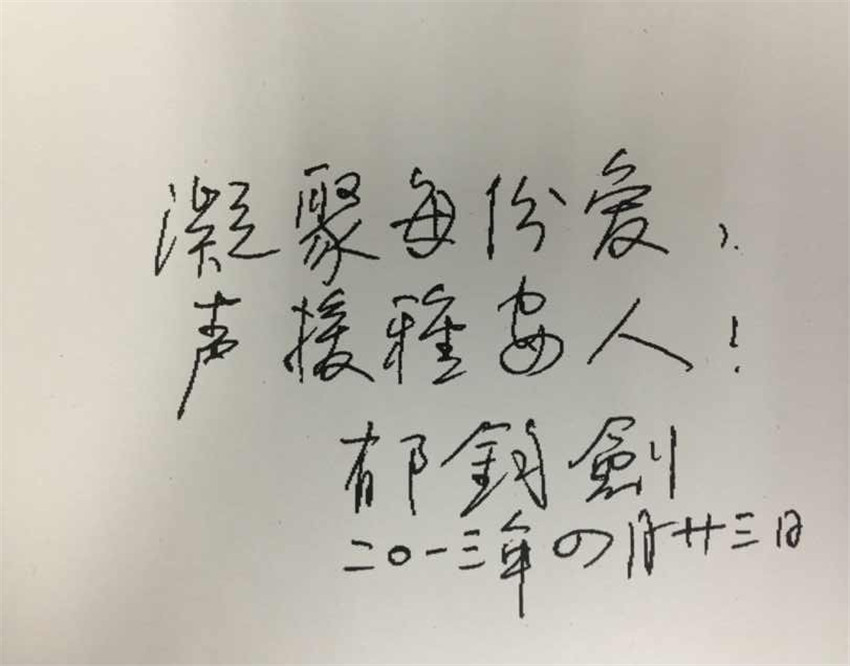 凝聚每份爱,
声援雅安人!
郁钧剑
二〇一三年四月廿三日